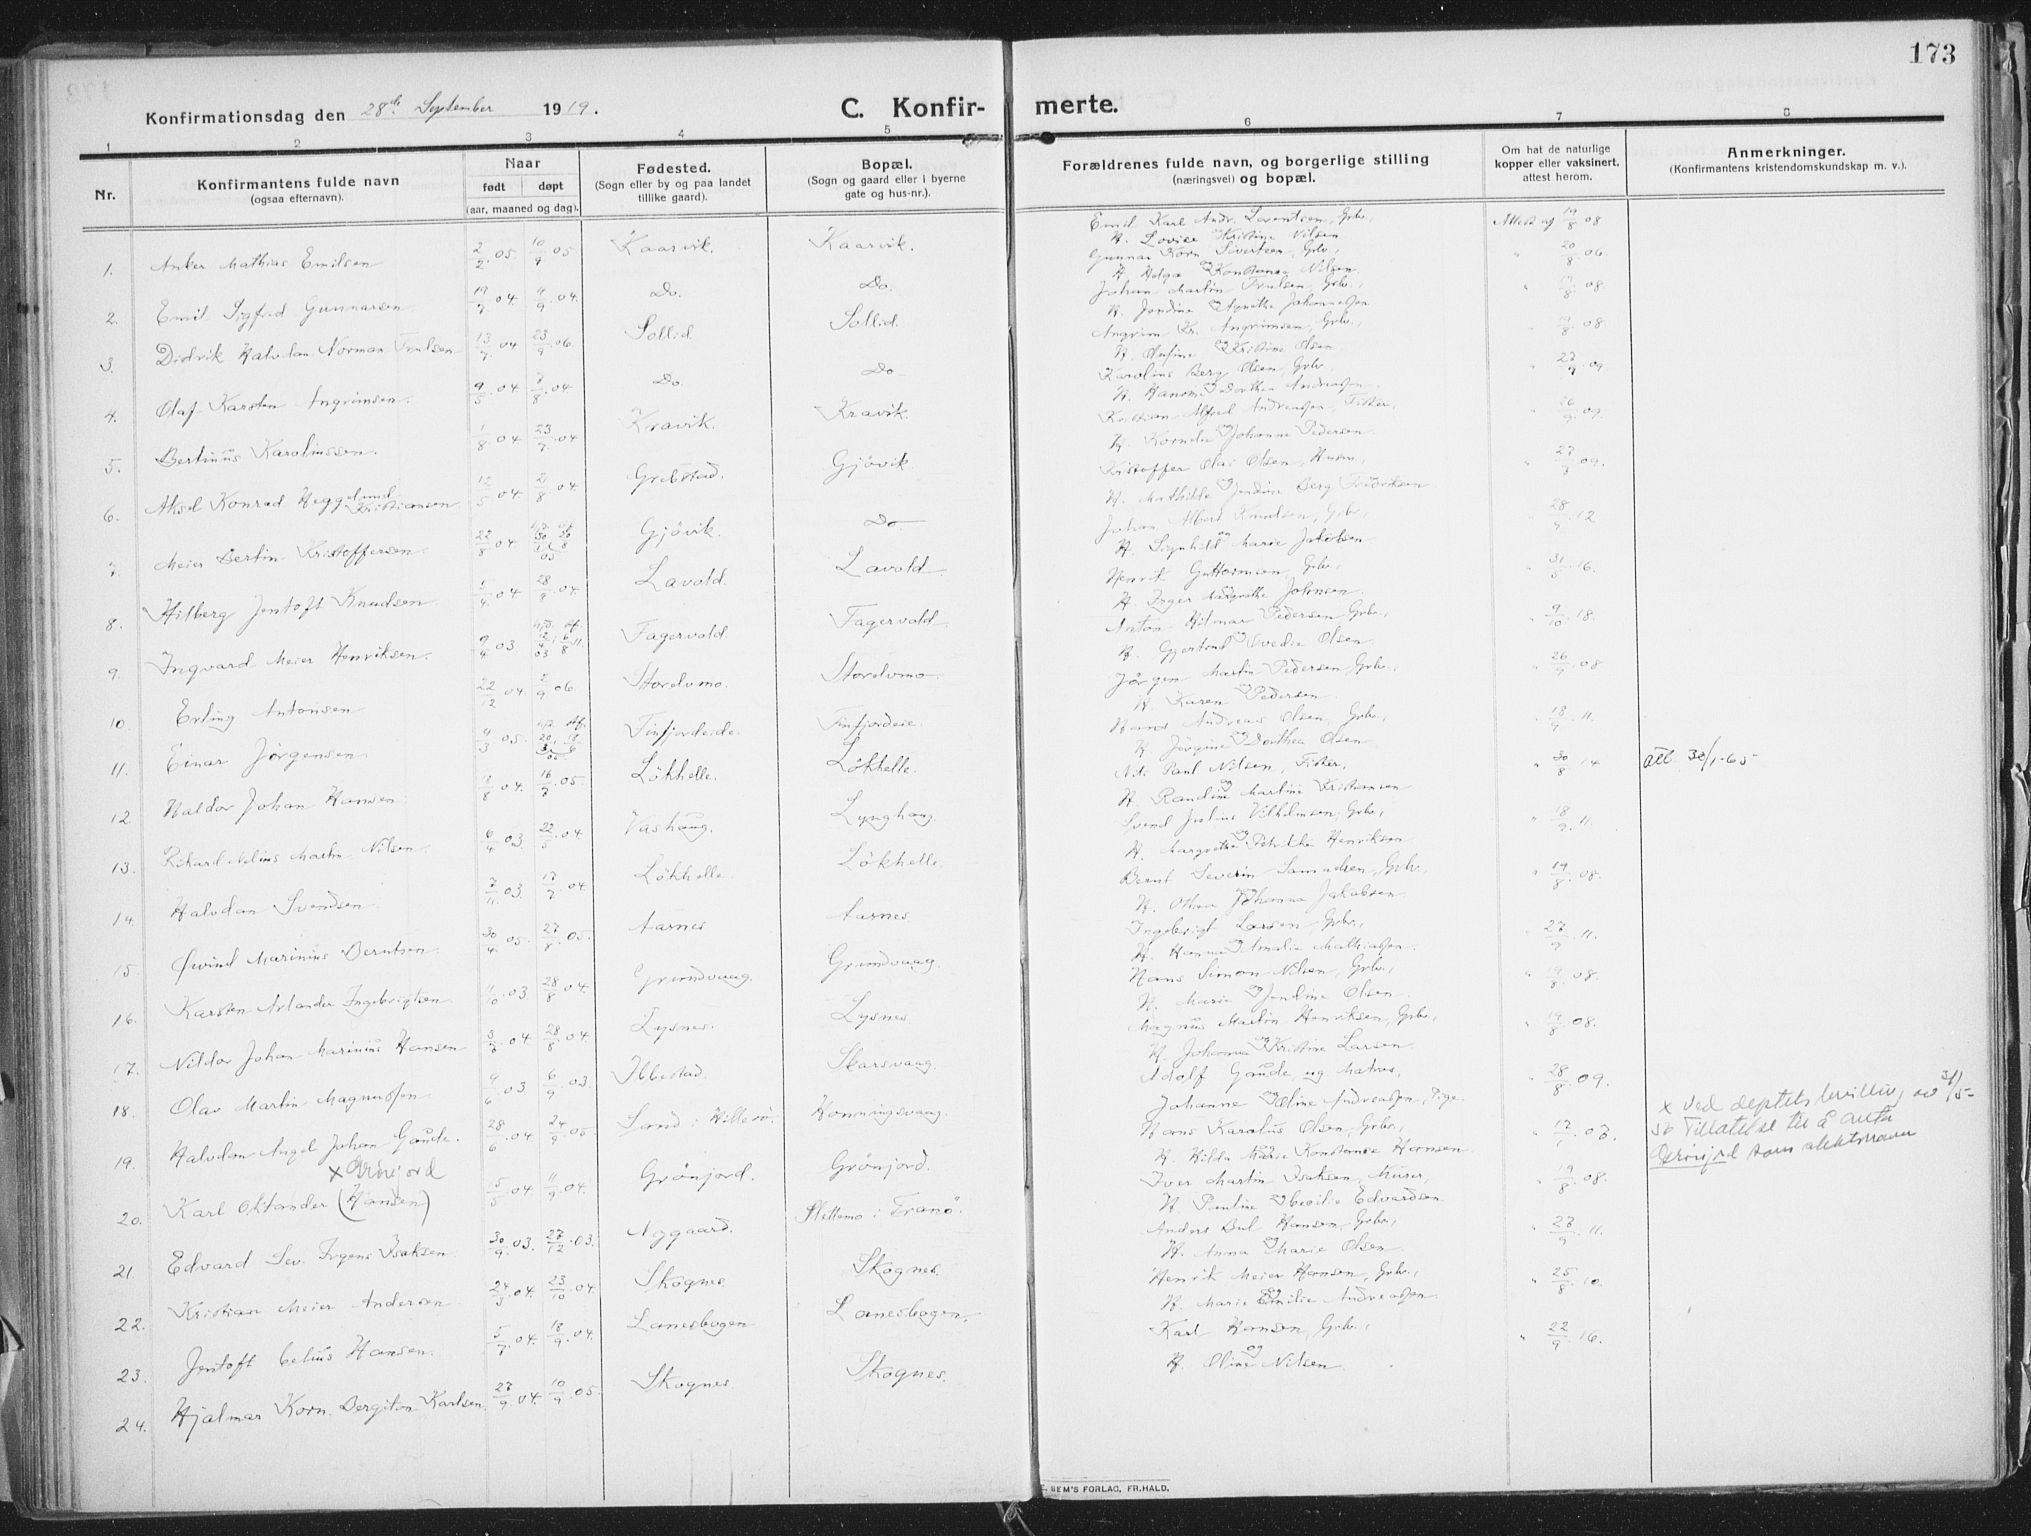 173
Konfirmationsdag den 28de September 1919.
C. Konfir- merte.
1 2 3 4 5 6 7 8
Nr.
Konfirmantens fulde navn
(ogsaa efternavn).
Naar
født døpt
(aar, maaned og dag).
Fødested.
(Sogn eller by og paa landet
tillike gaard).
Bopæl.
(Sogn og gaard eller i byerne
gate og hus-nr.).
Forældrenes fulde navn, og borgerlige stilling
(næringsvei) og bopæl.
Om hat de naturlige
kopper eller vaksinert,
attest herom.
Anmerkninger.
(Konfirmantens kristendomskundskap m. v.).
1. Anker Mathias Emilsen 2/2 05. 10/9 05 Kaarvik. Kaarvik. Emil Karl Andr. Lorentsen, Grbr., H. Lovise Kristine Nilsen Attest af 19/8 08
2. Emil Sigfred Gunnarsen 19/7 04 4/9 04. Do. Do. Gunnar Korn. Sivertsen, Grbr., H. Helga Konstanse Nilsen " 20/8 06.
3. Didrik Halvdan Norman Trulsen 13/7 04 23/9 06. Sollid. Sollid. Johan Martin Trulsen, Grbr., H. Jendine Agnethe Johannesen " 08
4. Olaf Karsten Angrimsen. 9/5 04 7/8 04 Do. Do Angrim Kr. Angrimsen, Grbr., H. Olufine Kristine Olsen " 19/8 08
5. Bertinus Karolinssen. 1/8 04 23/7 04 Kravik. Kravik. Karolius Berg Olsen, Grbr., H. Dorthea Andreassen " 09
6. Aksel Konrad Heggelund Kristiansen 12/5 04 2/8 04 Grebstad. Gjövik. Kristian Alfred Andreassen, Fisker, H. Kornelia Johanne Pedersen 09.
7. Meier Bertin Kristoffersen. 22/8 04 Gjövik. Do Kristoffer Olai Olsen, H. Mathilde Jendine Berg Fredriksen " 09.
8. Hilberg Jentoft Knudsen 04 28/8 04. Lavold. Lavold Johan Albert Knudsen, Grbr., H. Signhild Marie Jakobsen " 28/9 12
9. Ingvard Meier Henriksen. 9/4 03 Fagervold Fagervold Henrik Guttormsen, Grbr., H. Inger Margrethe Johnsen. " 31/5 16.
10. Erling Antonsen 22/12 04. 2/9 06. Storelvmo. Storelvmo. Anton Hilmar Pedersen Grbr., H. Gjertrud Olsen " 9/10 18.
11. Einar Jørgensen 4/3 05. Finfjordeide. Finfjordeide. Jørgen Martin Pedersen, Grbr., H. Karen Pedersen " 26/9 08
12 Haldor Johan Hansen 04. 16/7 05. Lökhelle. Lökhelle. Hans Andreas Olsen, Grbr., H. Jørgine Dorthea Olsen " 18/9 11.
13. Rikard Nilius Martin Nilsen 6/4 03 22/5 04 Vashaug. Lynghaug. Nils Paul Nilsen, Fisker, H. Randine Martine Kristiansen " 30/8 14 att. 30/1-65
14. Halvdan Svendsen 7/11 03. 17/7 04. Lökhelle. Lökhelle. Svend Julius Vilhelmsen, Grbr., H. Margrethe Petrikke Henriksen " 18/9 11.
15. Øivind Marinius Berntsen 30/4 05. 27/8 05. Aarnes Aarnes Bernt Severin Samuelsen, Grbr., H. Othea Johanna Jakobsen. " 19/8 08.
16. Karsten Arlander Ingebrigtsen 11/10 03. 28/8 04. Grundvaag. Grundvaag. Ingebrigt Larsen Grbr., H. Hanna Amalie Mathiassen. " 27/9 11.
17. Nildor Johan Marinius Hansen 04. 28/8 04. Lysnes. Lysnes Hans Simon Nilsen, Grbr., H. Marie Jendine Olsen. " 19/8 08.
18. Olav Martin Magnussen 9/6 03 6/9 03. Ibbestad. Skarsvaag. Magnus Martin Henriksen, Grbr., H. Johanna Kristine Larsen " 19/8 08.
19. Halvdan Angel Johan Gaude. 28/6 04. 24/9 05. Sand i Hillesø. Honningsvaag. Adolf Gaude, ug. Matros, Johanne Æline Andreassen, Pige. " 28/8 09.
20. Karl Oktander (Hansen) x Grönjord 15/5 04. 11/9 04. Grönjord. Grönjord. Hans Karolus Olsen, Grbr., H. Hilda Marie Konstanse Hansen " 07. x Ved deptets bevilling av 31/5-56 Tillatelse til å anta Grönjord som slektsnavn
21. Edvard Sev. Irgens Isaksen 30/9 03. 27/12 03. Nygaard. Slettemo i Tranö. Iver Martin Isaksen, Murer, H. Pauline Cecilie Edvardsen " 19/8 08.
22. Kristian Meier Andersen 24/3 04. 23/10 04. Skognes. Skognes. Anders Dul Hansen, Grbr., H. Anna Marie Olsen. " 27/9 11.
23. Jentoft Celius Hansen. 5/7 04. 18/9 04. Lanesbogen Lanesbogen. Henrik Meier Hansen, Grbr., H. Marie Emilie Andreassen. " 25/8 10.
24. Hjalmar Korn. Bergiton Karlsen. 27/9 04. 10/9 05. Skognes. Skognes. Karl Hansen, Grbr., H. Oline Nilsen. " 22/9 16.
SEM'S FORLAG, FR.HALD.